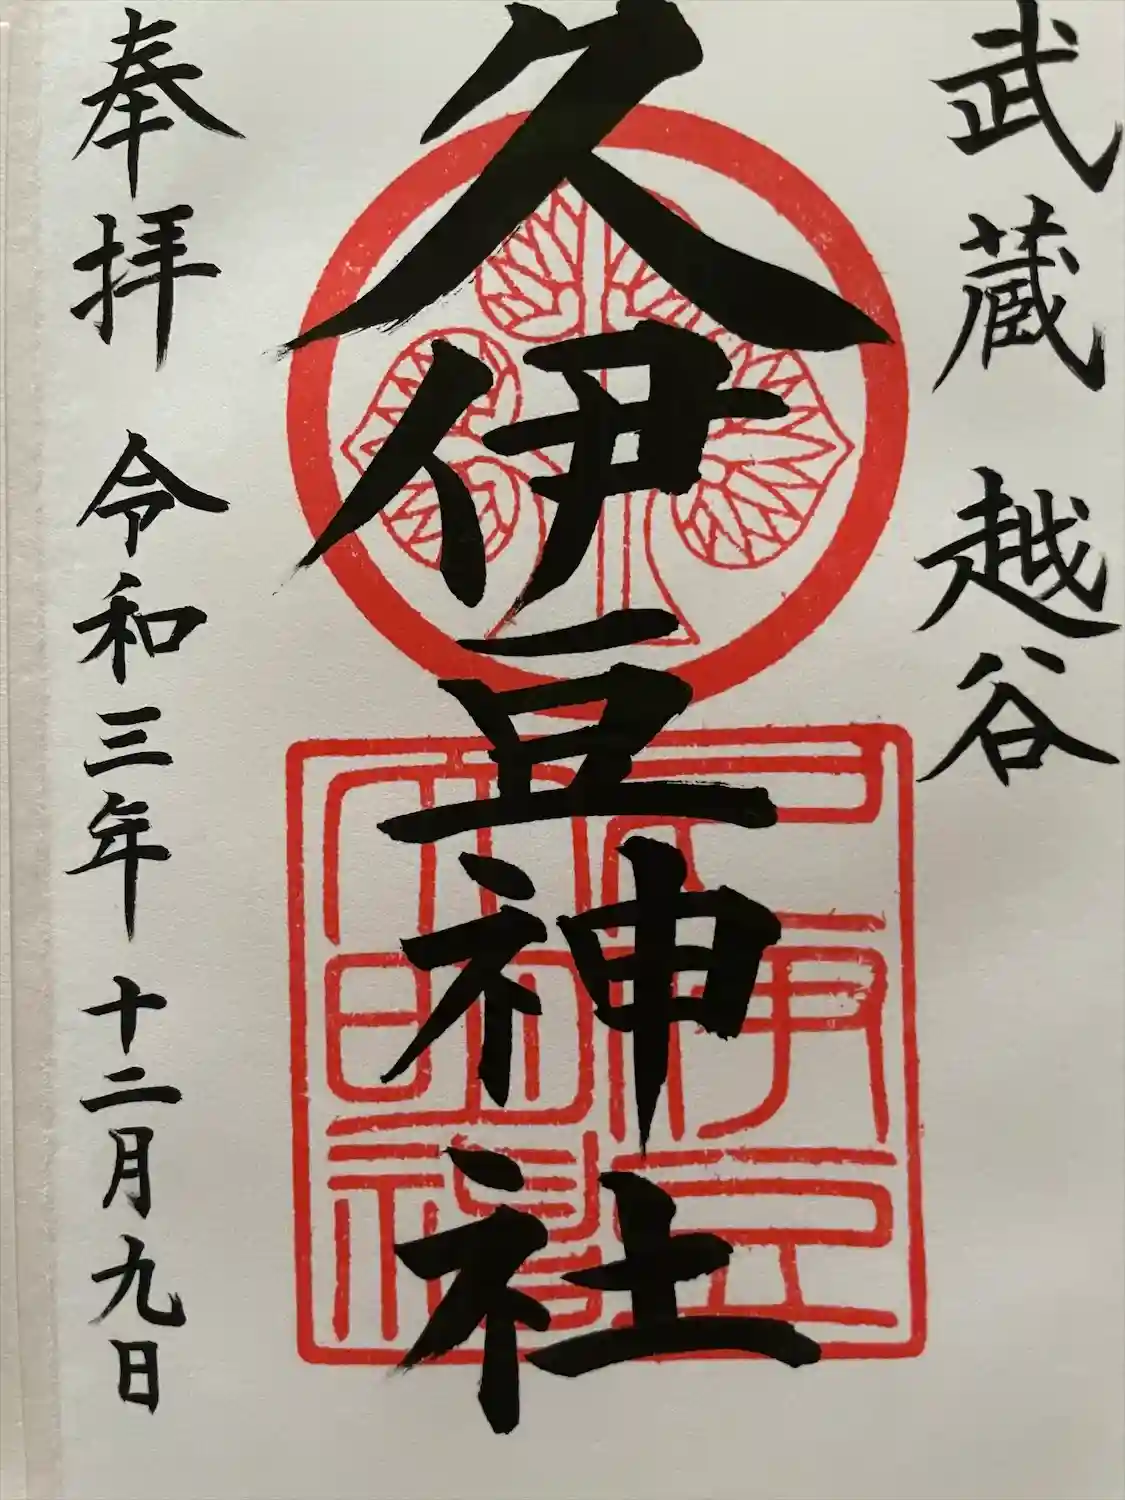 武蔵 越谷
久伊豆神社
奉拝 令和三年 十二月九日